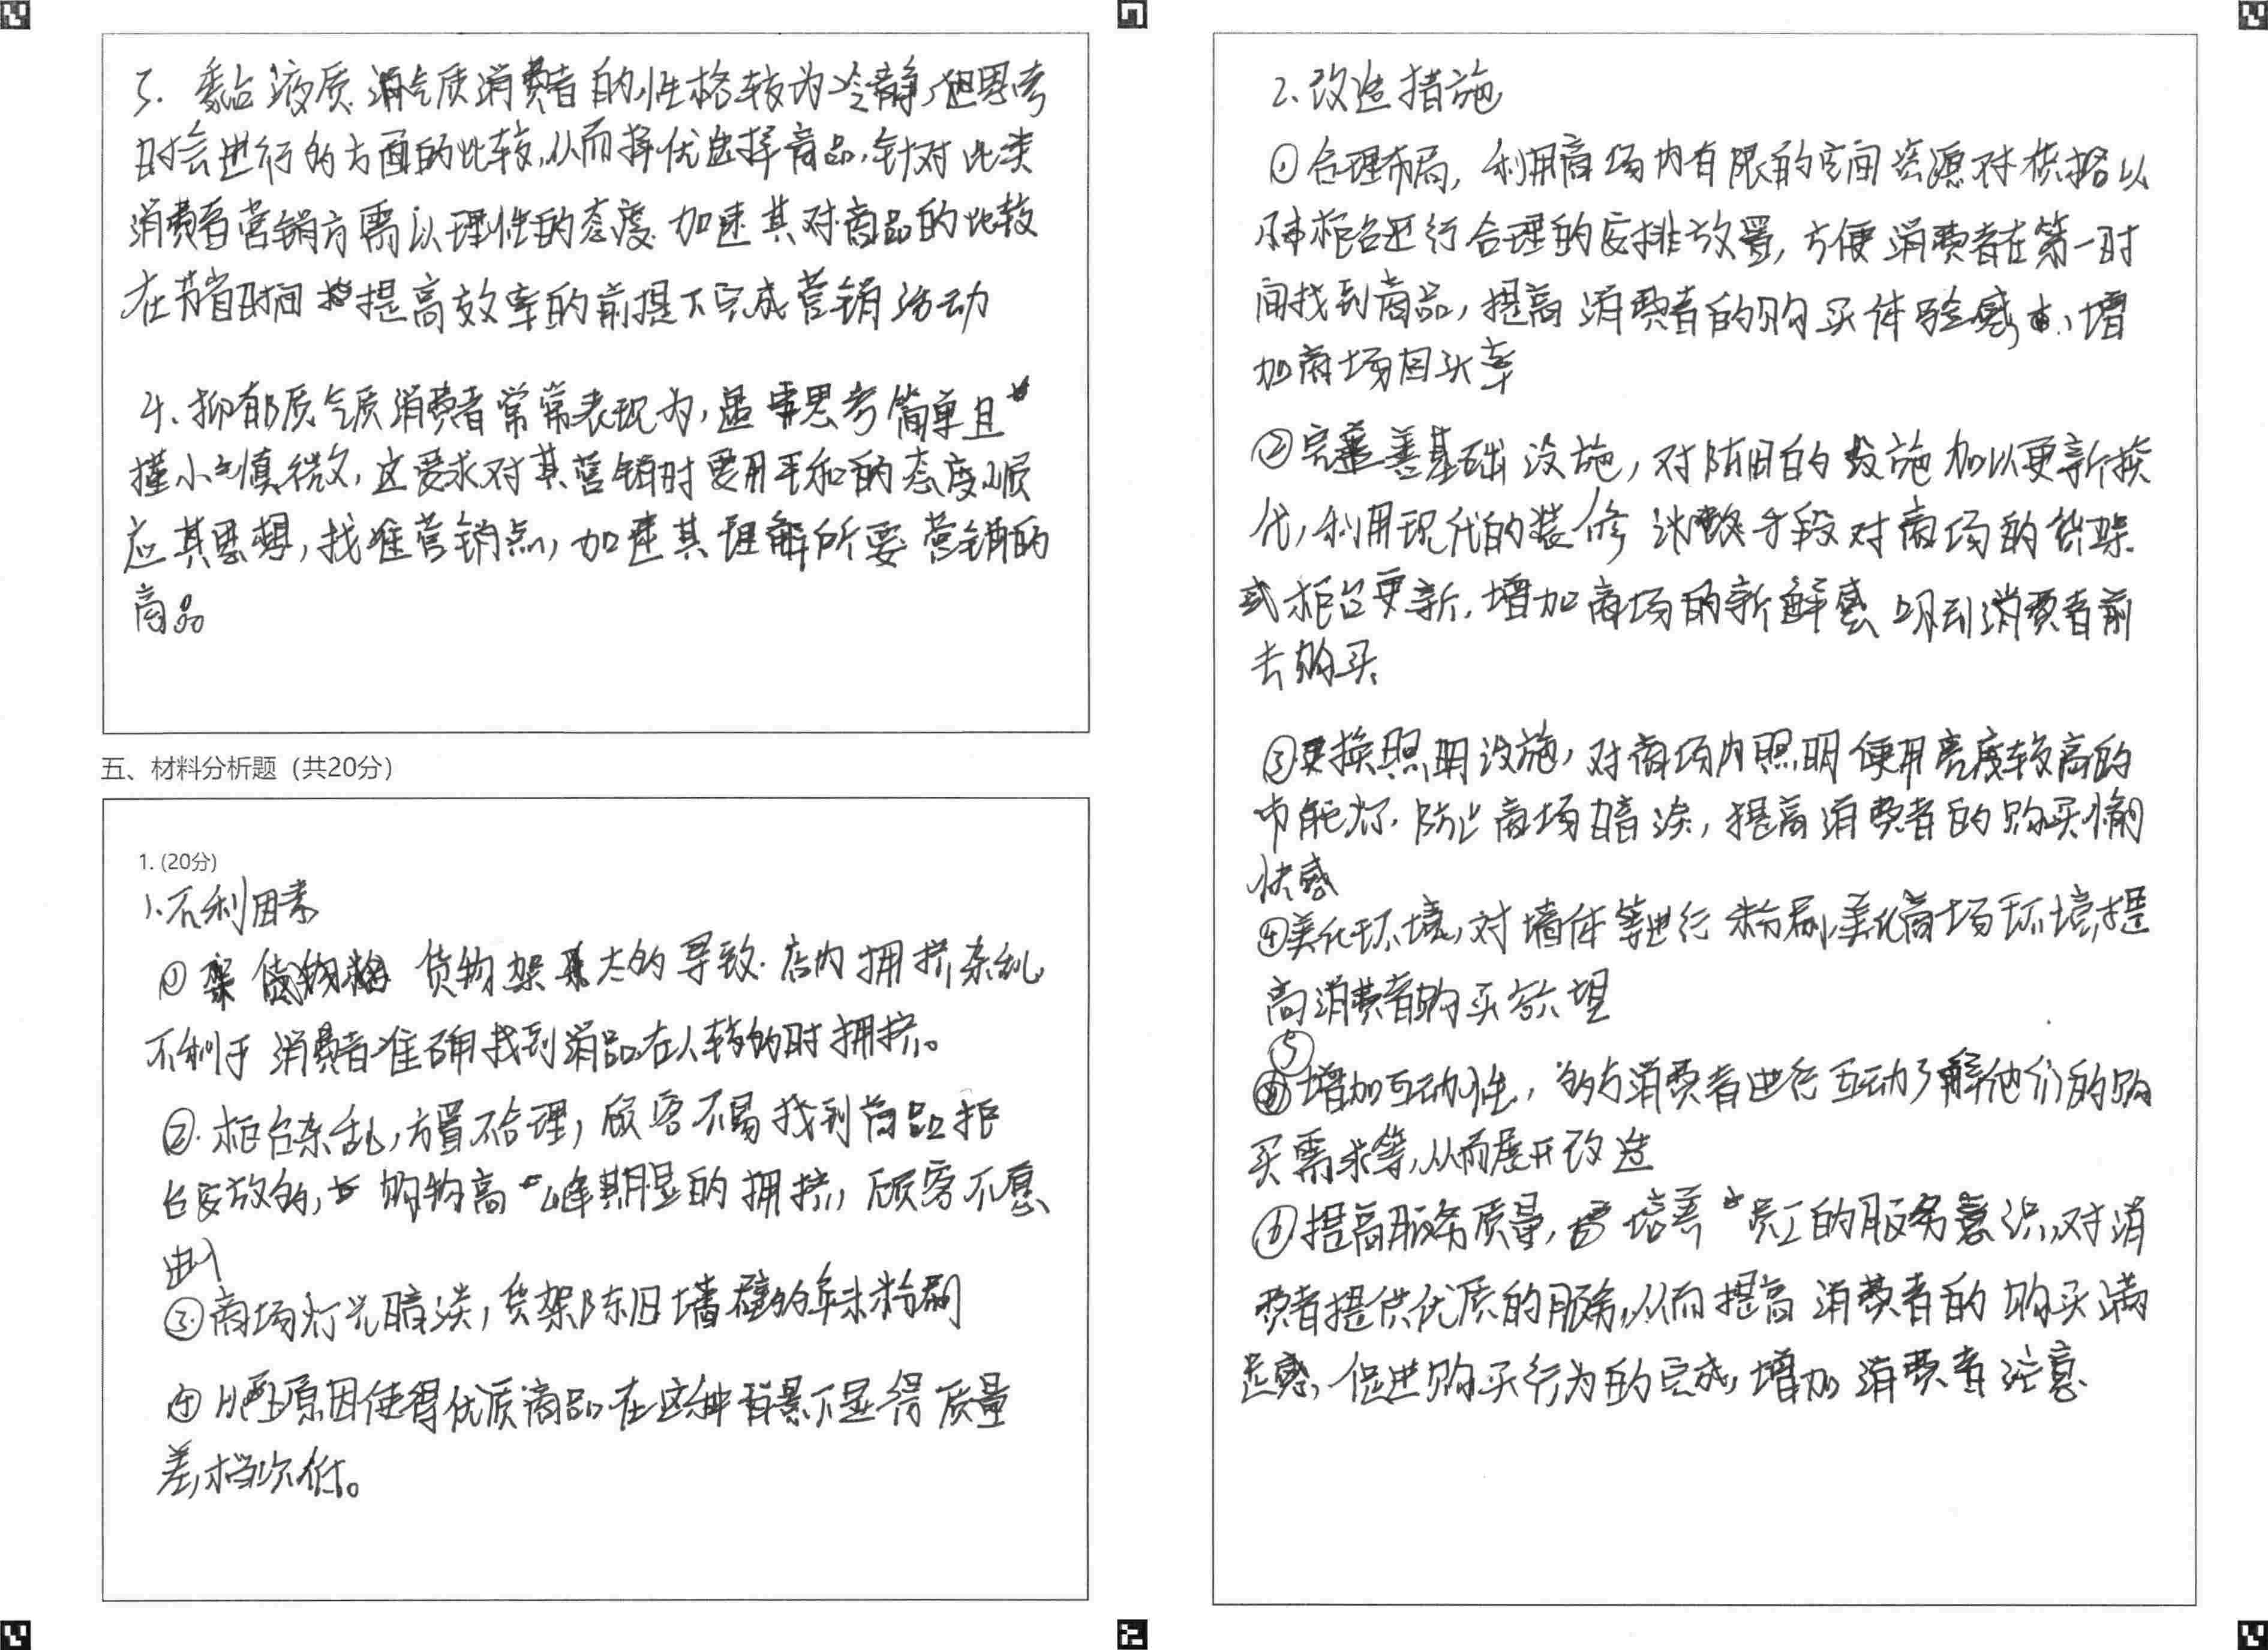 3. 黏液质 气质消费者的性格较为冷静,但思考
时会进行多方面的比较,从而择优选择商品,针对此类
消费者营销方需以理性的态度 加速其对商品的比较
在节省时间 提高效率的前提下完成营销活动
4、抑郁质气质消费者常常表现为,思考简单且
谨小慎微,这要求对其营销时要用平和的态度顺
应其思想,找准营销点,加速其理解所要营销的
商品
五、材料分析题(共20分)
1. (20分)
1、不利因素
① 货物架 大多导致 店内拥挤杂乱
不利于消费者准确找到消品在人较多时拥挤。
②. 柜台杂乱,方置不合理,顾客不易找到商品柜
台安放多, 购物高峰期显的拥挤,顾客不愿
进入
③商场灯光暗淡,货架陈旧墙壁多年未粉刷
④ 原因使得优质商品在这种背景下显得质量
差,档次低。
2、改造措施
①合理布局,利用商场内有限的空间资源对 以
柜台进行合理的安排放置,方便消费者在第一时
间找到商品,提高消费者的购买体验感,增
加商场回头率
②完善基础设施,对陈旧的设施加以更新换
代,利用现代的装修 手段对商场的货架
或柜台更新,增加商场的新鲜感 消费者前
去购买
③更换照明设施,对商场内照明使用亮度较高的
节能灯.防止商场暗淡,提高消费者的购买愉
快感
④美化环境,对墙体等进行粉刷,美化商场环境,提
高消费者购买欲望
⑤增加互动性,多与消费者进行互动了解他们的购
买需求等,从而展开改造
⑥提高服务质量,培养员工的服务意识,对消
费者提供优质的服务,从而提高消费者的购买满
足感,促进购买行为的完成,增加消费者注意